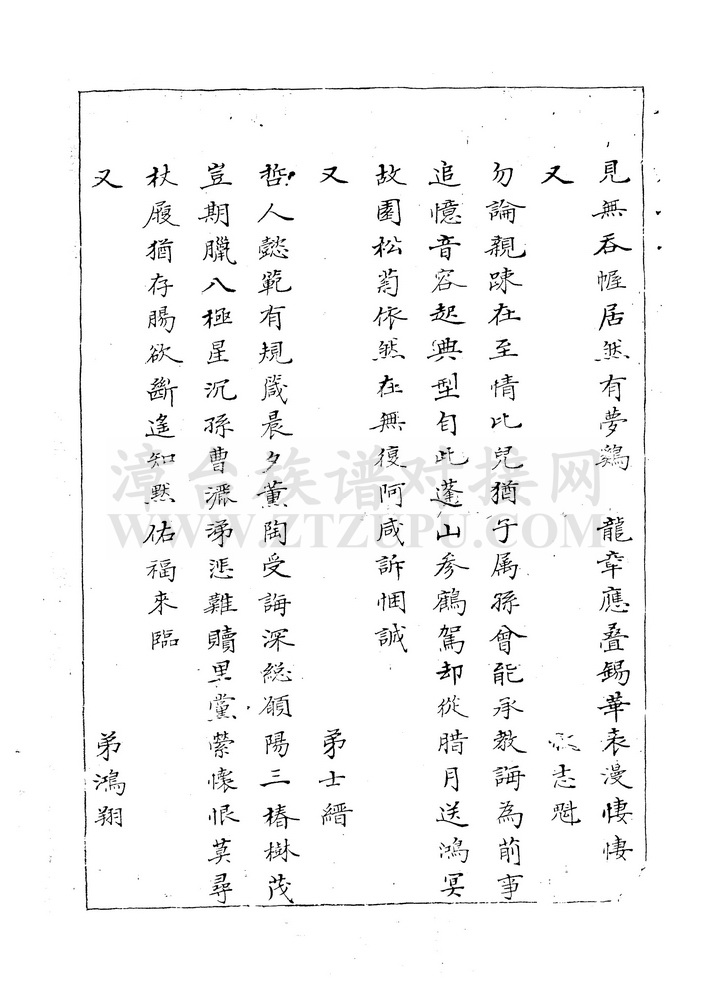 見無吞幄居然有夢鷄 龍章應叠錫華表漫悽悽
又 志魁
勿論親踈在至情比兒猶子属孫曾能承教誨為前事
追憶音容起典型自此蓬山参鶴駕却從腊月送鴻冥
故園松菊依然在無復阿咸訴悃誠
又 弟士縉
哲人懿範有規箴晨夕薰陶受誨深総願陽三椿樹茂
豈期臘八極星沉孫曹灑涕悲難贖里黨縈懷恨莫尋
杖履猶存腸欲斷遙知默佑福來臨
又 弟鴻翔
漳台族谱对接网
WWW.ZTZUPU.COM